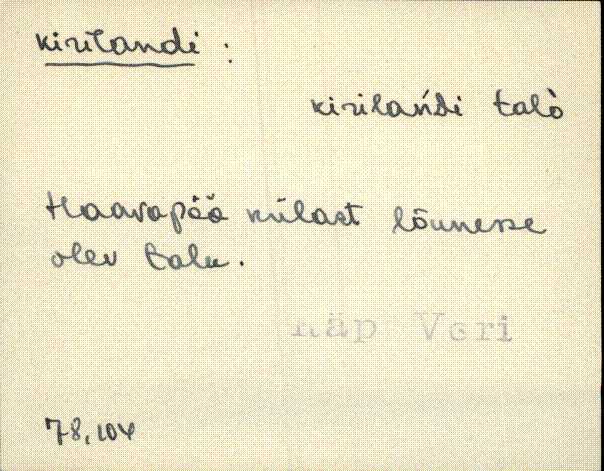 kirilandi :
kirilańdi talò
Haavapää külast lõunesse
olev talu.
Räp Veri
78,104